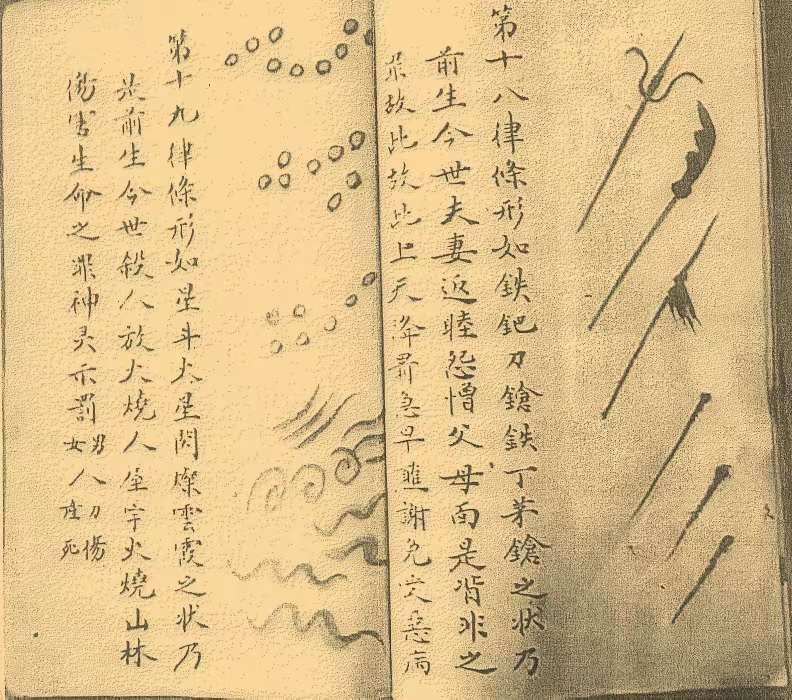 第十八律條形如鉄鈀刀鎗鉄丁茅鎗之状乃
前生今世夫妻返睦怨憎父母面是背非之
罪故此故此上天降罰急早醮謝免災惡病
第十九律條形如星斗火星閃爍雲霞之状乃
是前生今世殺人放火燒人屋宇火燒山林
傷害生命之罪神灵示罰男人刀傷女人産死